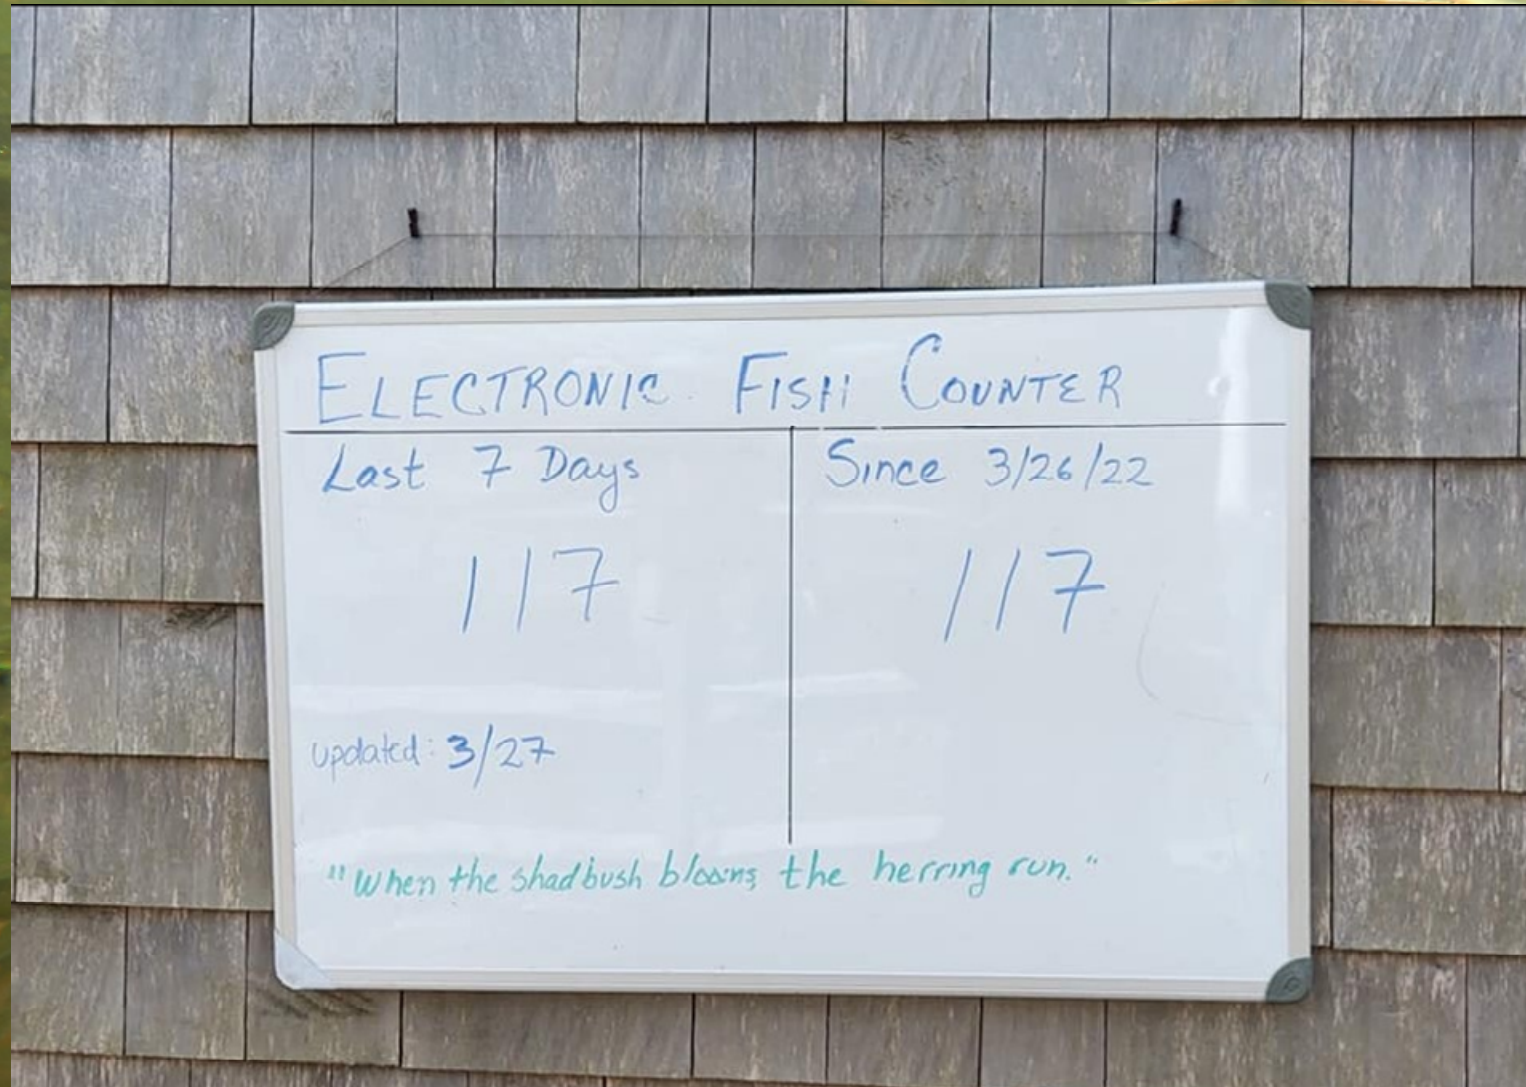 ELECTRONIC FISH COUNTER
Last 7 Days
117
updated: 3/27
Since 3/26/22
117
"When the shadbush blooms, the herring run."